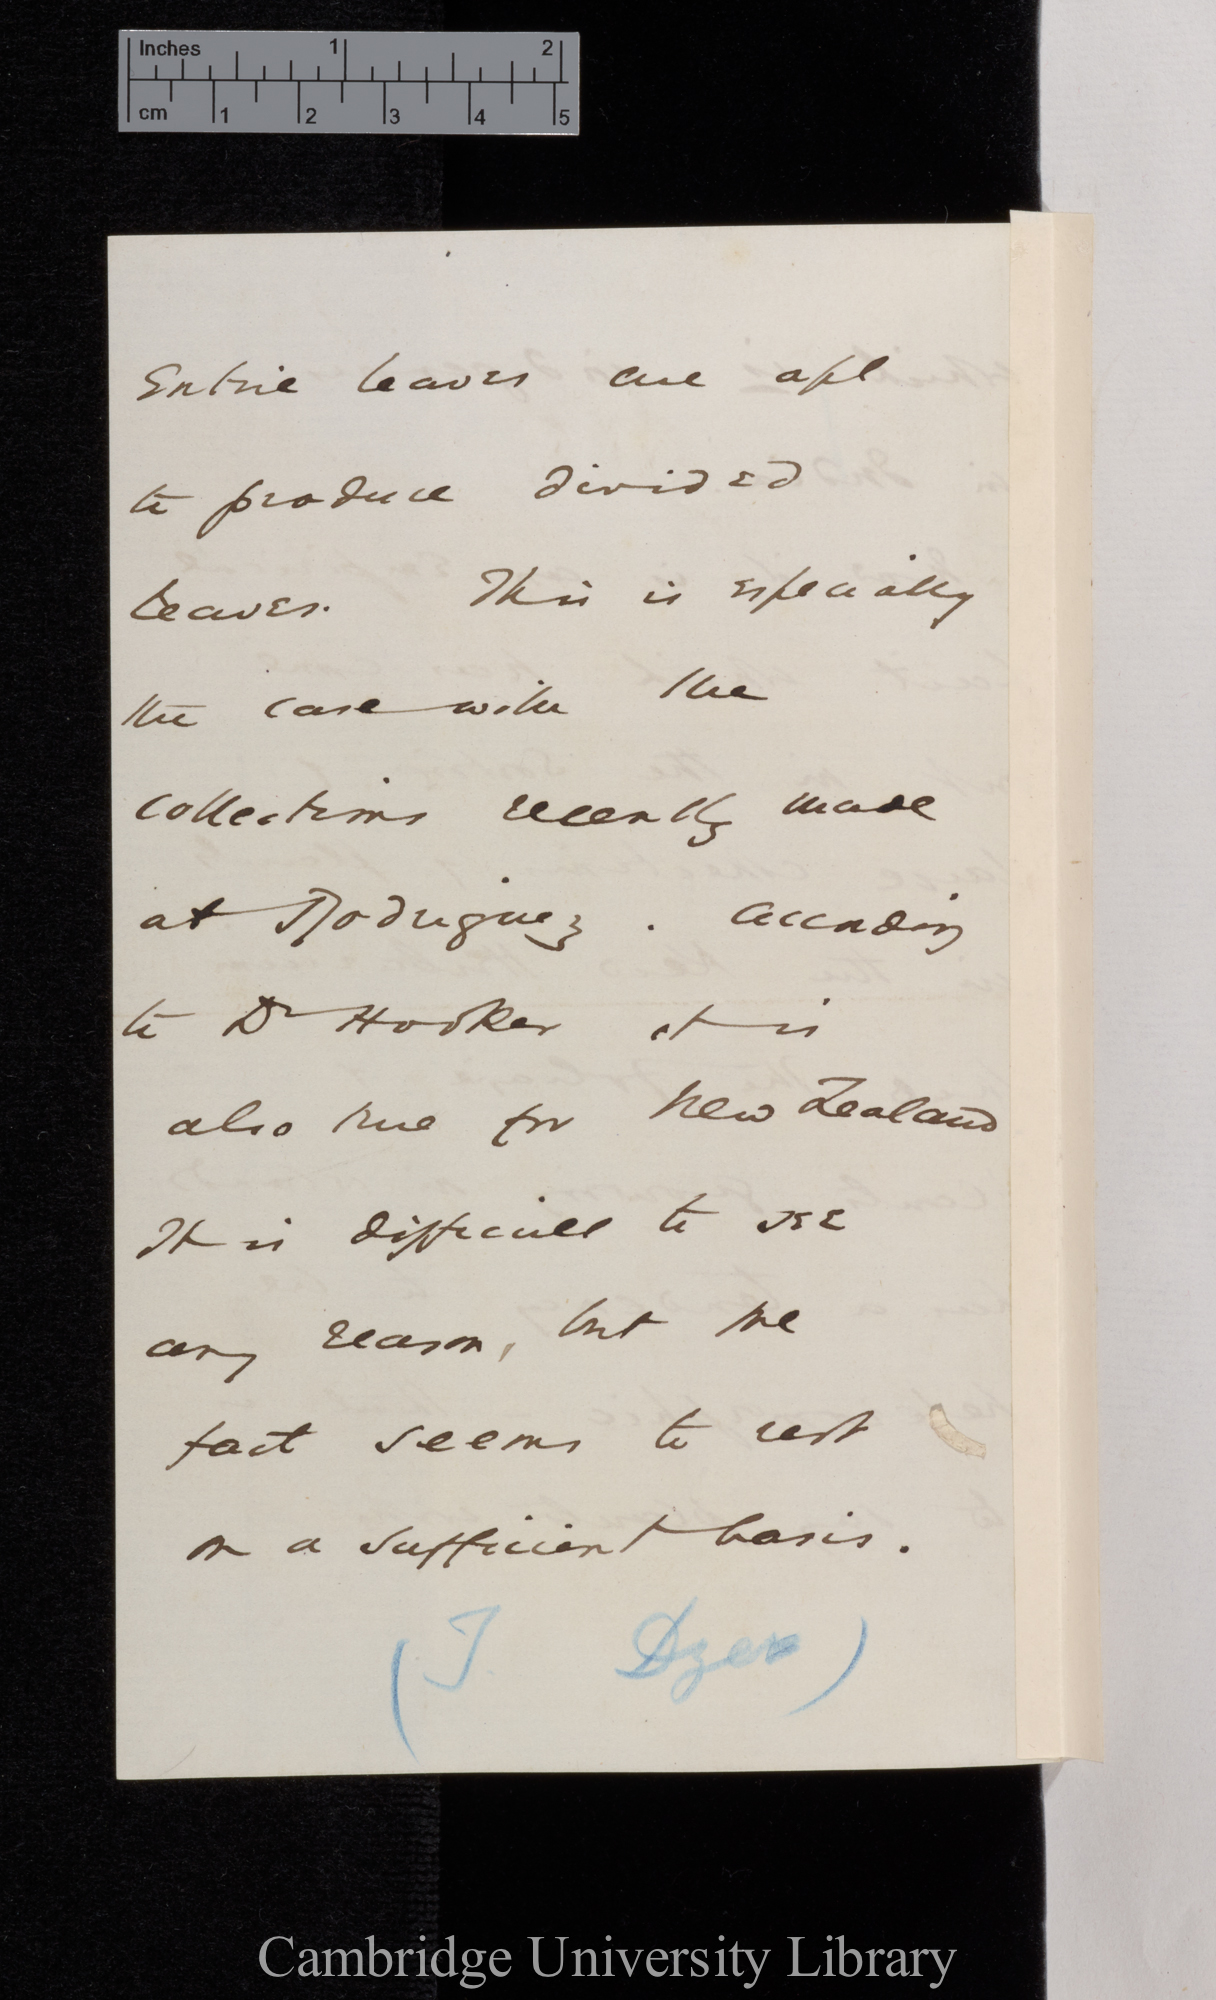 Inches 1 2
cm 1 2 3 4 5
Entire leaves are apt
to produce divided
leaves. This is especially
the case with the
collections recently made
at Rodriguez. According
to Dr Hooker it is
also true for New Zealand
It is difficult to see
any reason, but the
fact seems to rest
on a sufficient basis.
(T Dyer)
Cambridge University Library